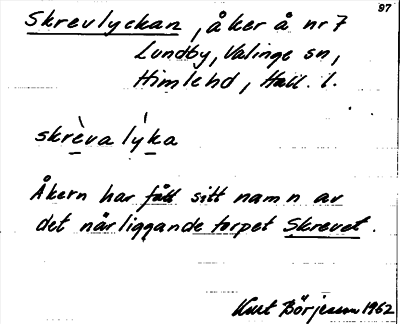 97
Skrevlyckan, åker å nr 7
Lundby, Valinge sn,
Himlehd, Hall. l.
skrèva lýka
Åkern har fått sitt namn av
det närliggande torpet Skrevet.
Kurt Börjesson 1962